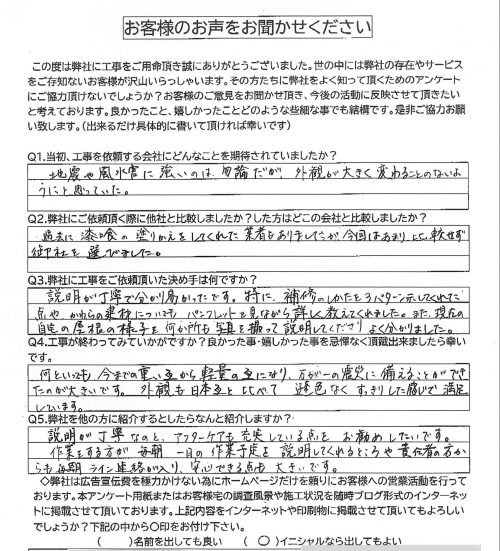 お客様のお声をお聞かせください
この度は弊社に工事をご用命頂き誠にありがとうございました。世の中には弊社の存在やサービス
をご存知ないお客様が沢山いらっしゃいます。その方たちに弊社をよく知って頂くためのアンケート
にご協力頂けないでしょうか？お客様のご意見をお聞かせ頂き、今後の活動に反映させて頂きたい
と考えております。良かったこと、嬉しかったことどのような些細な事でも結構です。是非ご協力お願
い致します。（出来るだけ具体的に書いて頂ければ幸いです）
Q1.当初、工事を依頼する会社にどんなことを期待されていましたか？
地震や風水害に強いのは、勿論だが、外観が大きく変わることのないよ
うにと思っていた。
Q2.弊社にご依頼頂く際に他社と比較しましたか？した方はどこの会社と比較しましたか？
過去に漆喰の塗りかえをしてくれた業者もありましたが今回はあまり比較せず
御社を選びました。
Q3.弊社に工事をご依頼頂いた決め手は何ですか？
説明が丁寧で分かり易かったです。特に、補修のしかたを3パターン示してくれた
点や かわらの素材についても パンフレットを見ながら詳しく教えてくれました。また、現在の
自宅の屋根の様子を何か所も写真を撮って説明してくださり よく分かりました。
Q4.工事が終わってみていかがですか？良かった事・嬉しかった事を忌憚なく頂戴出来ましたら幸い
です。
何といっても 今までの重い瓦から軽量の瓦になり、万が一の震災に備えることができ
たのが大きいです。外観も日本瓦と比べて 遜色なくすっきりした感じで満足
しています。
Q5.弊社を他の方に紹介するとしたらなんと紹介しますか？
説明が丁寧なのと、アフターケアも充実している点をお勧めしたいです。
作業をする方が毎朝 一日の作業予定を説明してくれるところや責任者の方か
らも毎朝ライン連絡が入り、安心できる点も大きいです。
◇弊社は広告宣伝費を極力かけない為にホームページだけを頼りにお客様への営業活動を行って
おります。本アンケート用紙またはお客様宅の調査風景や施工状況を随時ブログ形式のインターネッ
トに掲載させて頂いております。上記内容をインターネットや印刷物に掲載させて頂いてもよろしい
でしょうか？下記の中から〇印をお付け下さい。
（　　）名前を出しても良い　（ 〇 ）イニシャルなら出してもよい